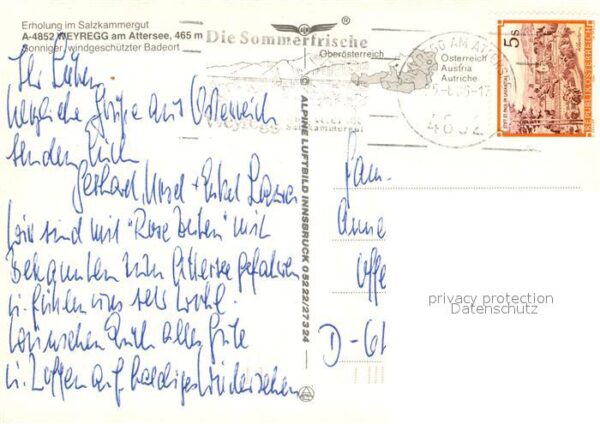 Erholung im Salzkammergut
A-4852 WEYREGG am Attersee, 465 m
Sonniger, windgeschützter Badeort
Ihr Lieben
herzliche Grüße aus Österreich
senden Euch
Gerhard, Ursel + Enkel
wir sind mit "Rose
Bekannten zum Attersee gefahren
u. fühlen uns sehr wohl.
wünschen Euch alles Gute
u. hoffen auf baldiges Wiedersehen
ALPINE LUFTBILD INNSBRUCK 05222/27324
®
Die Sommerfrische
Oberösterreich
Weyregg
Salzkammergut
EGG AM ATTERS
Österreich
Austria
Autriche
5s
REPUBLIK ÖSTERREICH
Fam.
Anne
Offe
D-61
privacy protection
Datenschutz